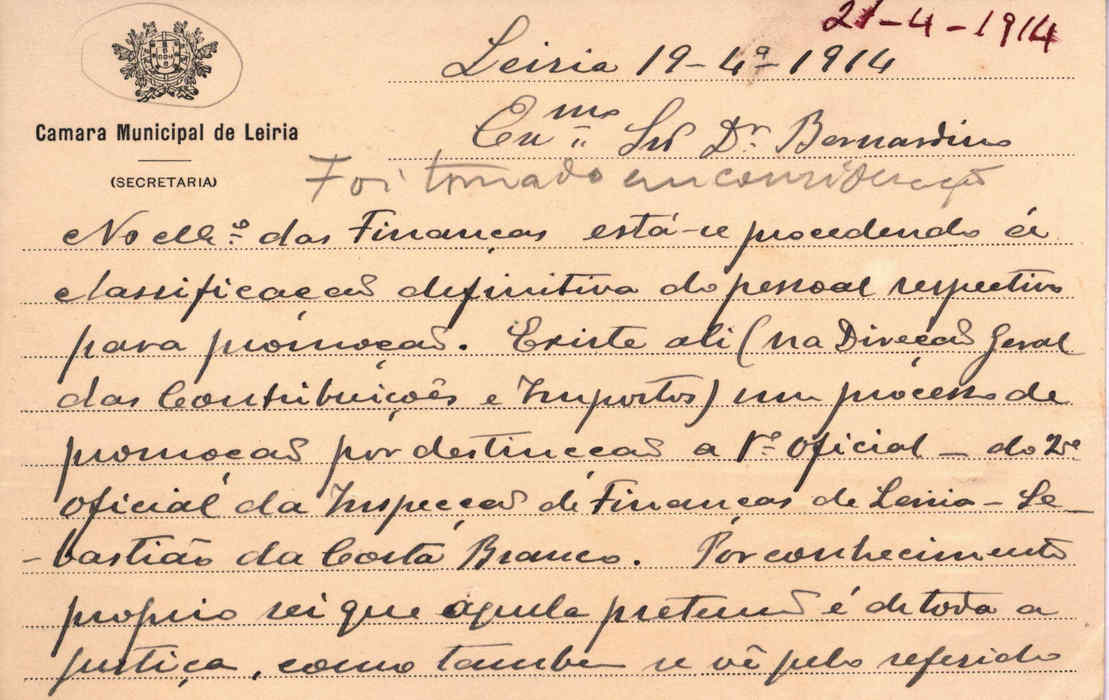 21-4-1914
Leiria 19-4º-1914
Camara Municipal de Leiria
(SECRETARIA)
Exmo Snr Dr. Bernardino
Foi tomado em consideração
No M.º das Finanças está-se procedendo á
classificação definitiva do pessoal respectivo
para promoção. Existe ali (na Direcção Geral
das Contribuições e Impostos) um processo de
promoção por destincção a 1º oficial - do 2º
oficial da Inspecção de Finanças de Leiria - Se-
-bastião da Costa Branco. Por conhecimento
proprio sei que aquela pretensão é de toda a
justiça, como tambem se vê pelo referido